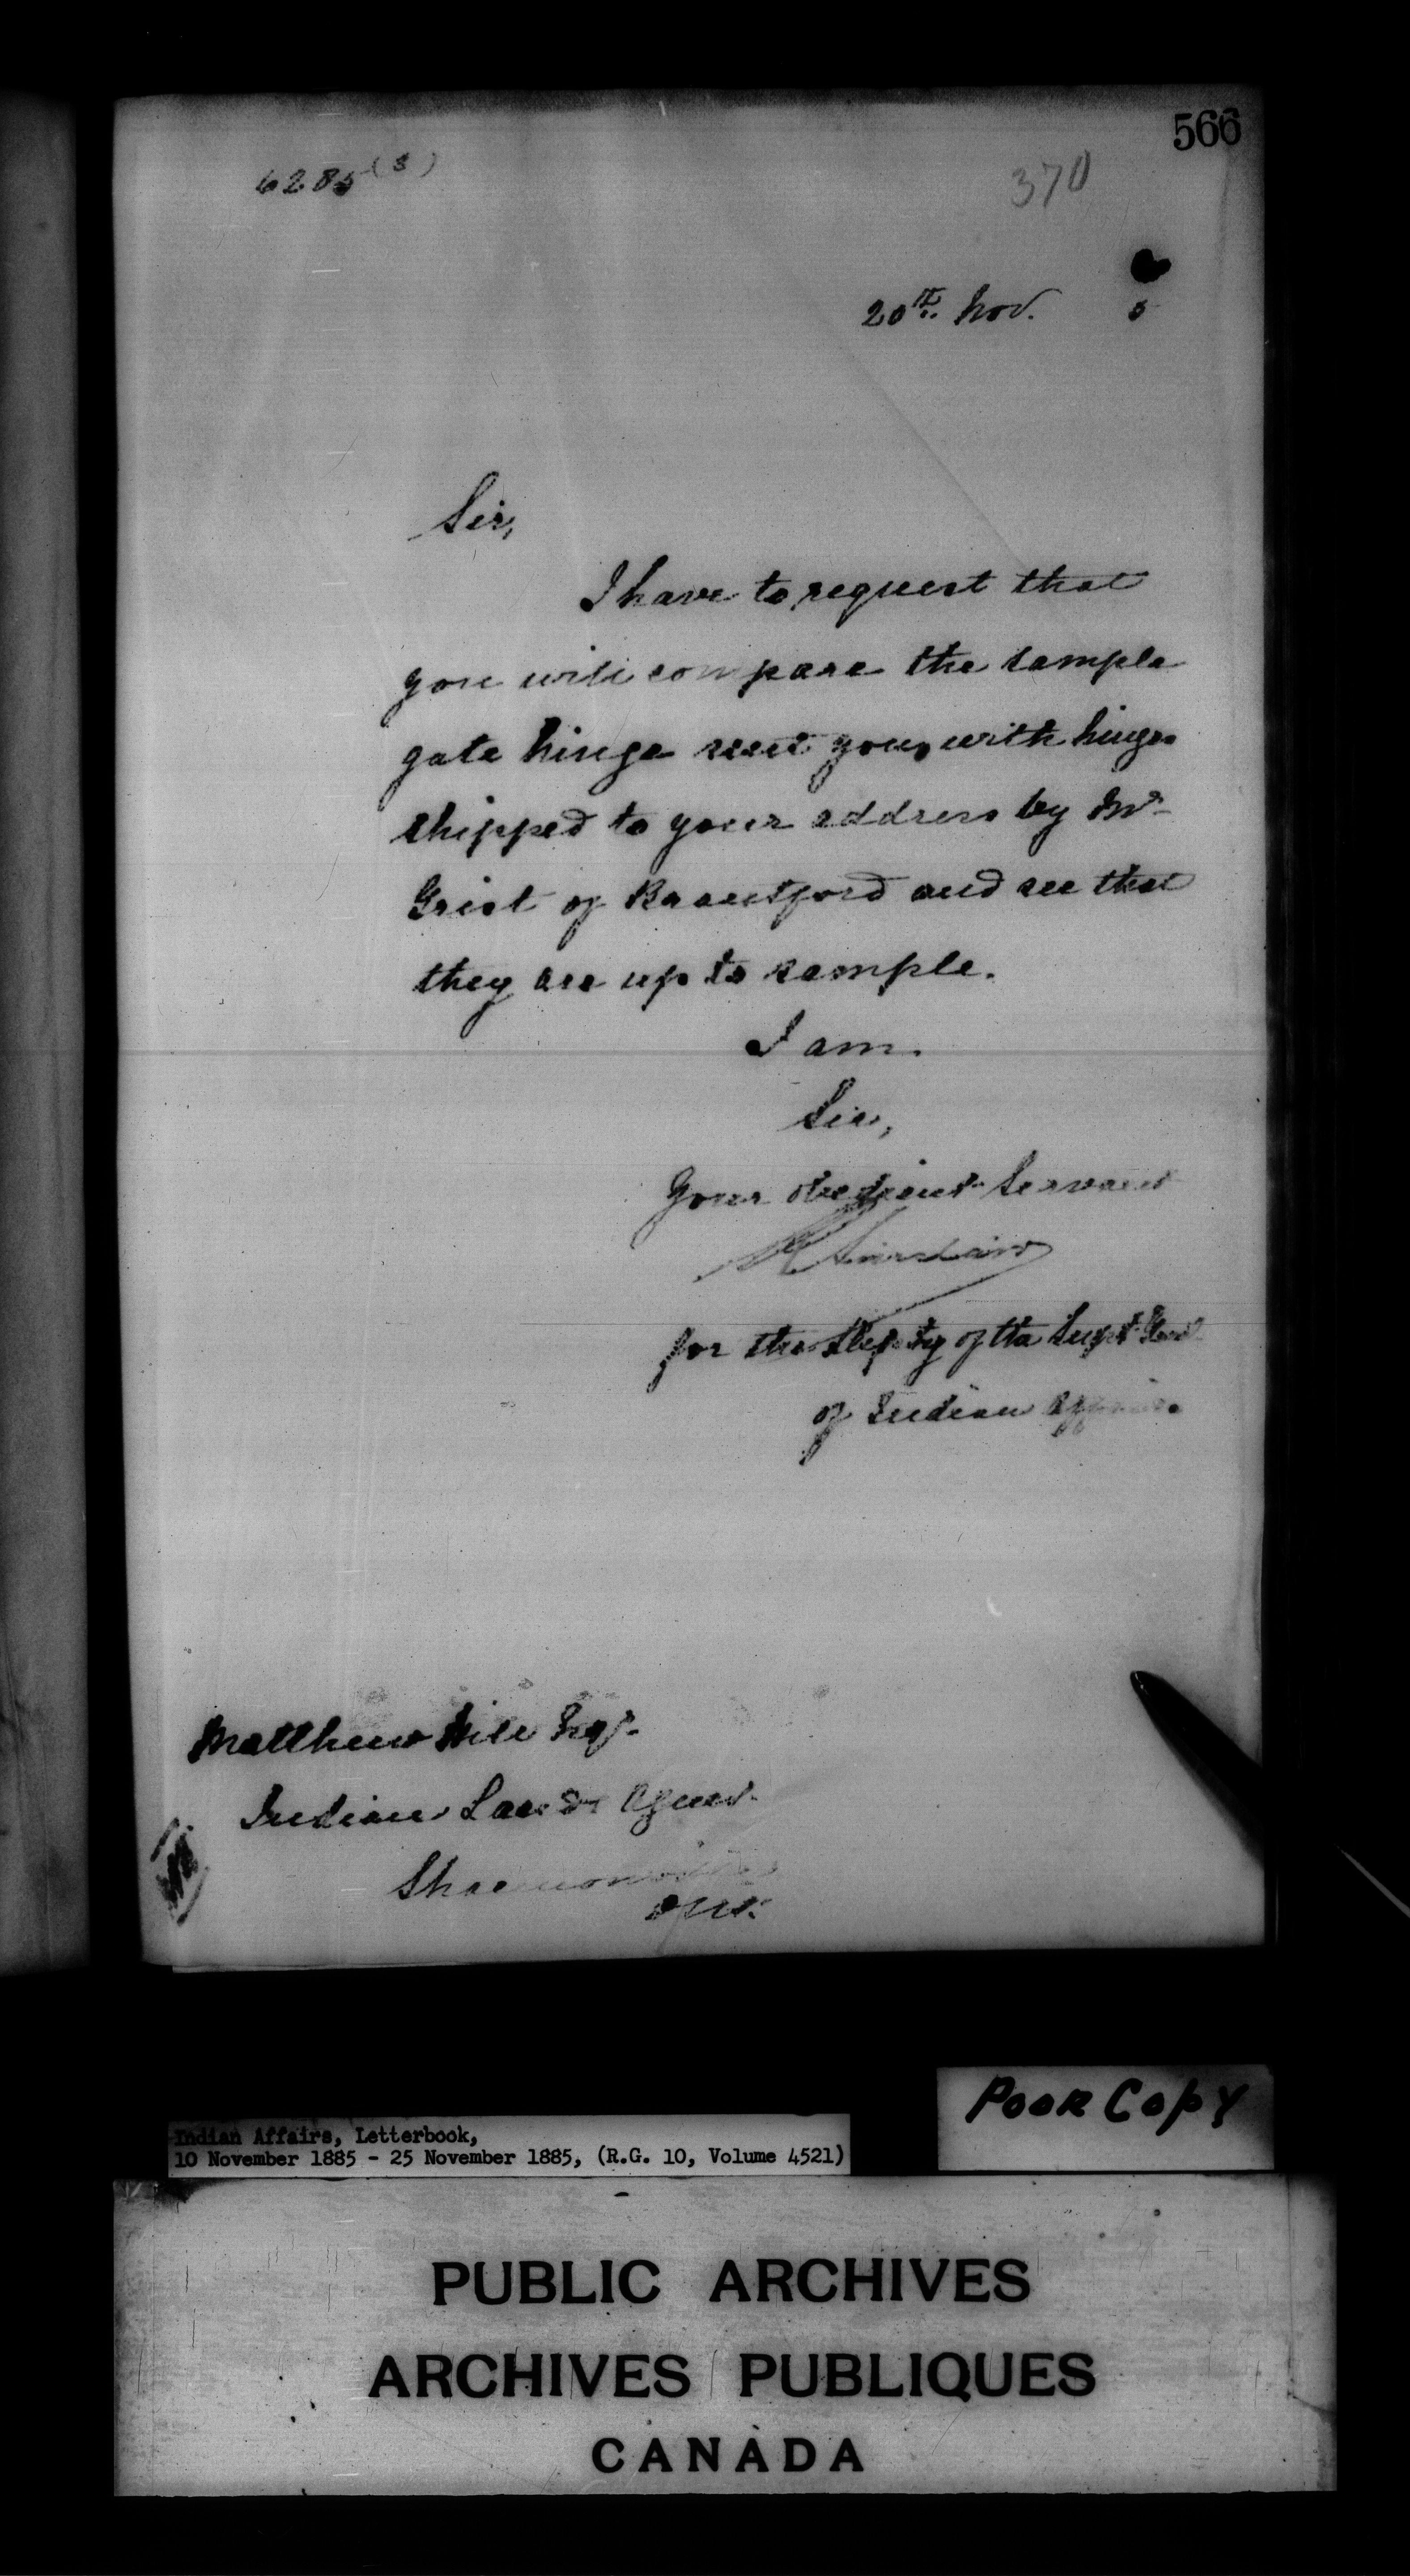 566
6285 (3)
370
20th. Nov. 5
Sir,
I have to request that
you will compare the sample
gate hinge sent you, with hinges
shipped to your address by Mr
Grist of Brantford and see that
they are up to sample.
I am.
Sir,
Your obedient Servant
for the Deputy of the Supt Genl
of Indian Affairs.
Matthew Hill Esqr.
Indian Lands Agent.
Shannonville
Ont.
Poor Copy
Indian Affairs, Letterbook,
10 November 1885 - 25 November 1885, (R.G. 10, Volume 4521)
PUBLIC ARCHIVES
ARCHIVES PUBLIQUES
CANADA